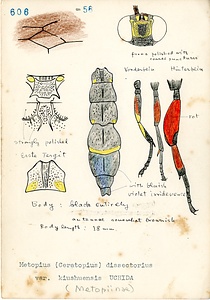 606
- 58
face polished with
coarse punctures
Vorderbein Hinterbein
rot
strongly polished
Erste Tergit
with bluish
violet iridescence
Body : black entirely
antennae somewhat brownish
Body length : 18 mm
Metopius (Ceratopius) dissectorius
var. kiushuensis UCHIDA
( Metopiinae )